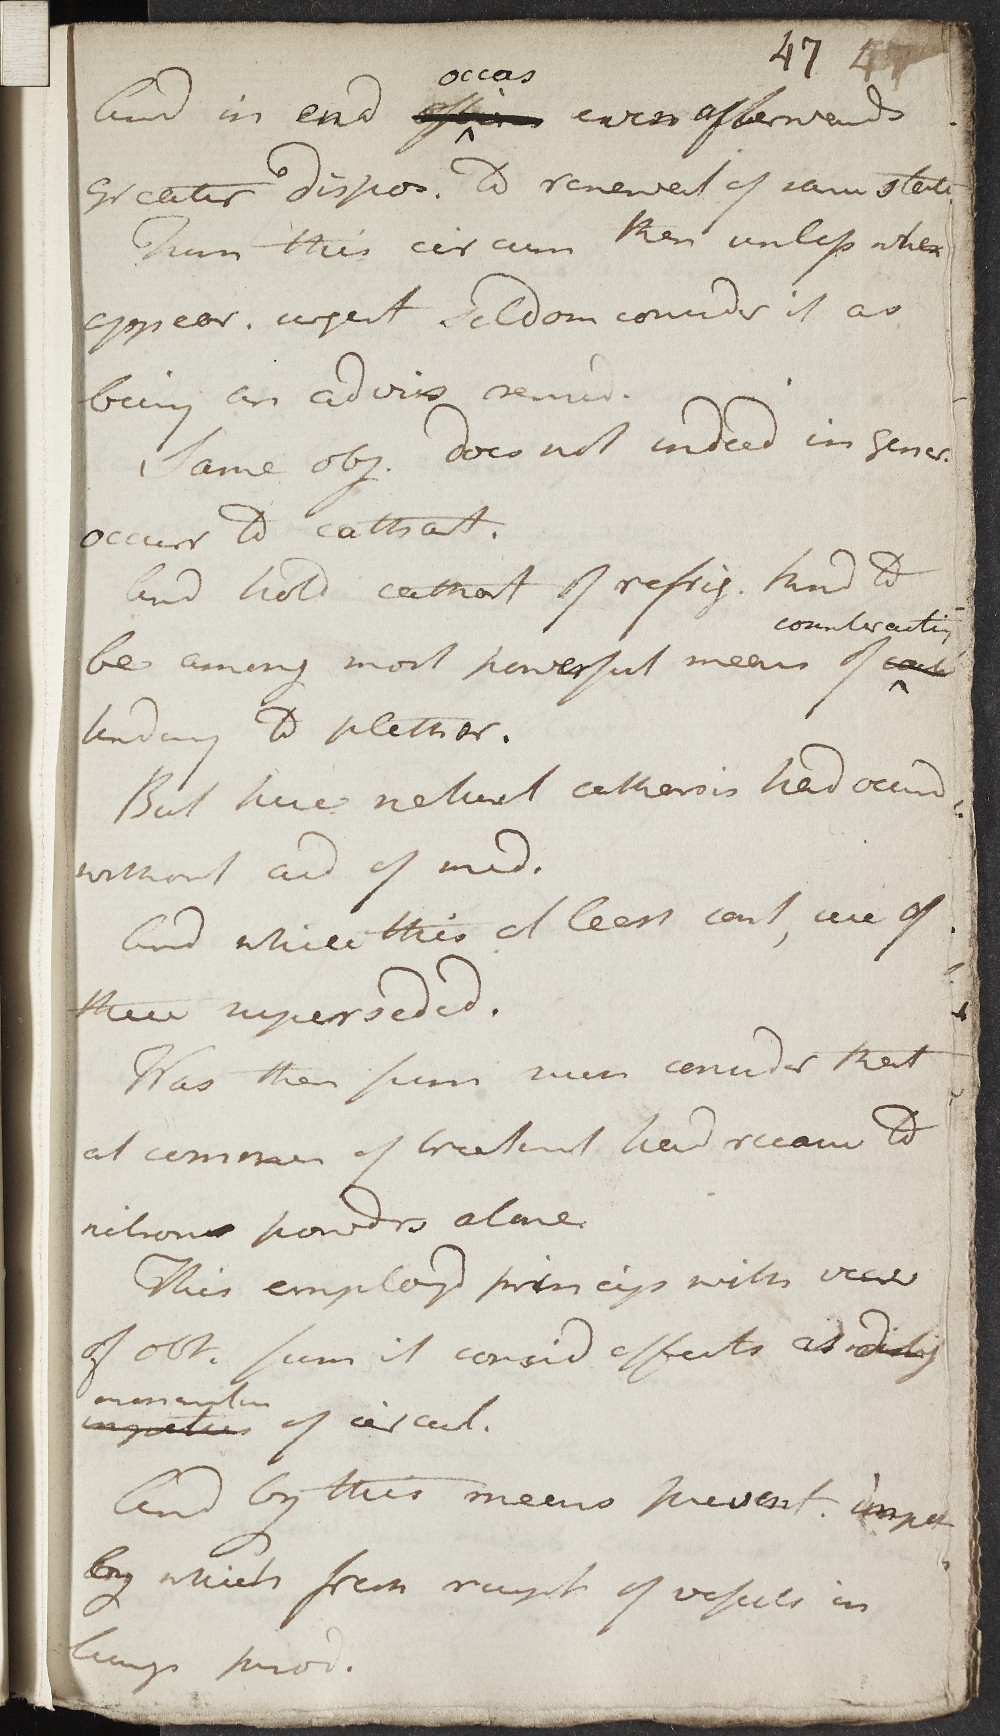 47 47
occas
And in end even afterwards
greater dispos. to renewal of same state
From this circum then unless when
appear. urgent Seldom consider it as
being an advis remed.
Same obj. does not indeed in gener.
occurr to cathart.
And hold cathart of refrig. kind to
counteracting
be among most powerful means of
tendency to plethor.
But here natural catharsis had occurd
without aid of med.
And while this at least cont, use of
these superseded.
Was then from num consider that
at commen of treatment had recour to
nitrous powdrs alone
This employd princip with view
of obt. from it consid effects as
momentum
impetus of circul.
And by this means prevent. impet
by which from rupt of vessels in
lungs prod.